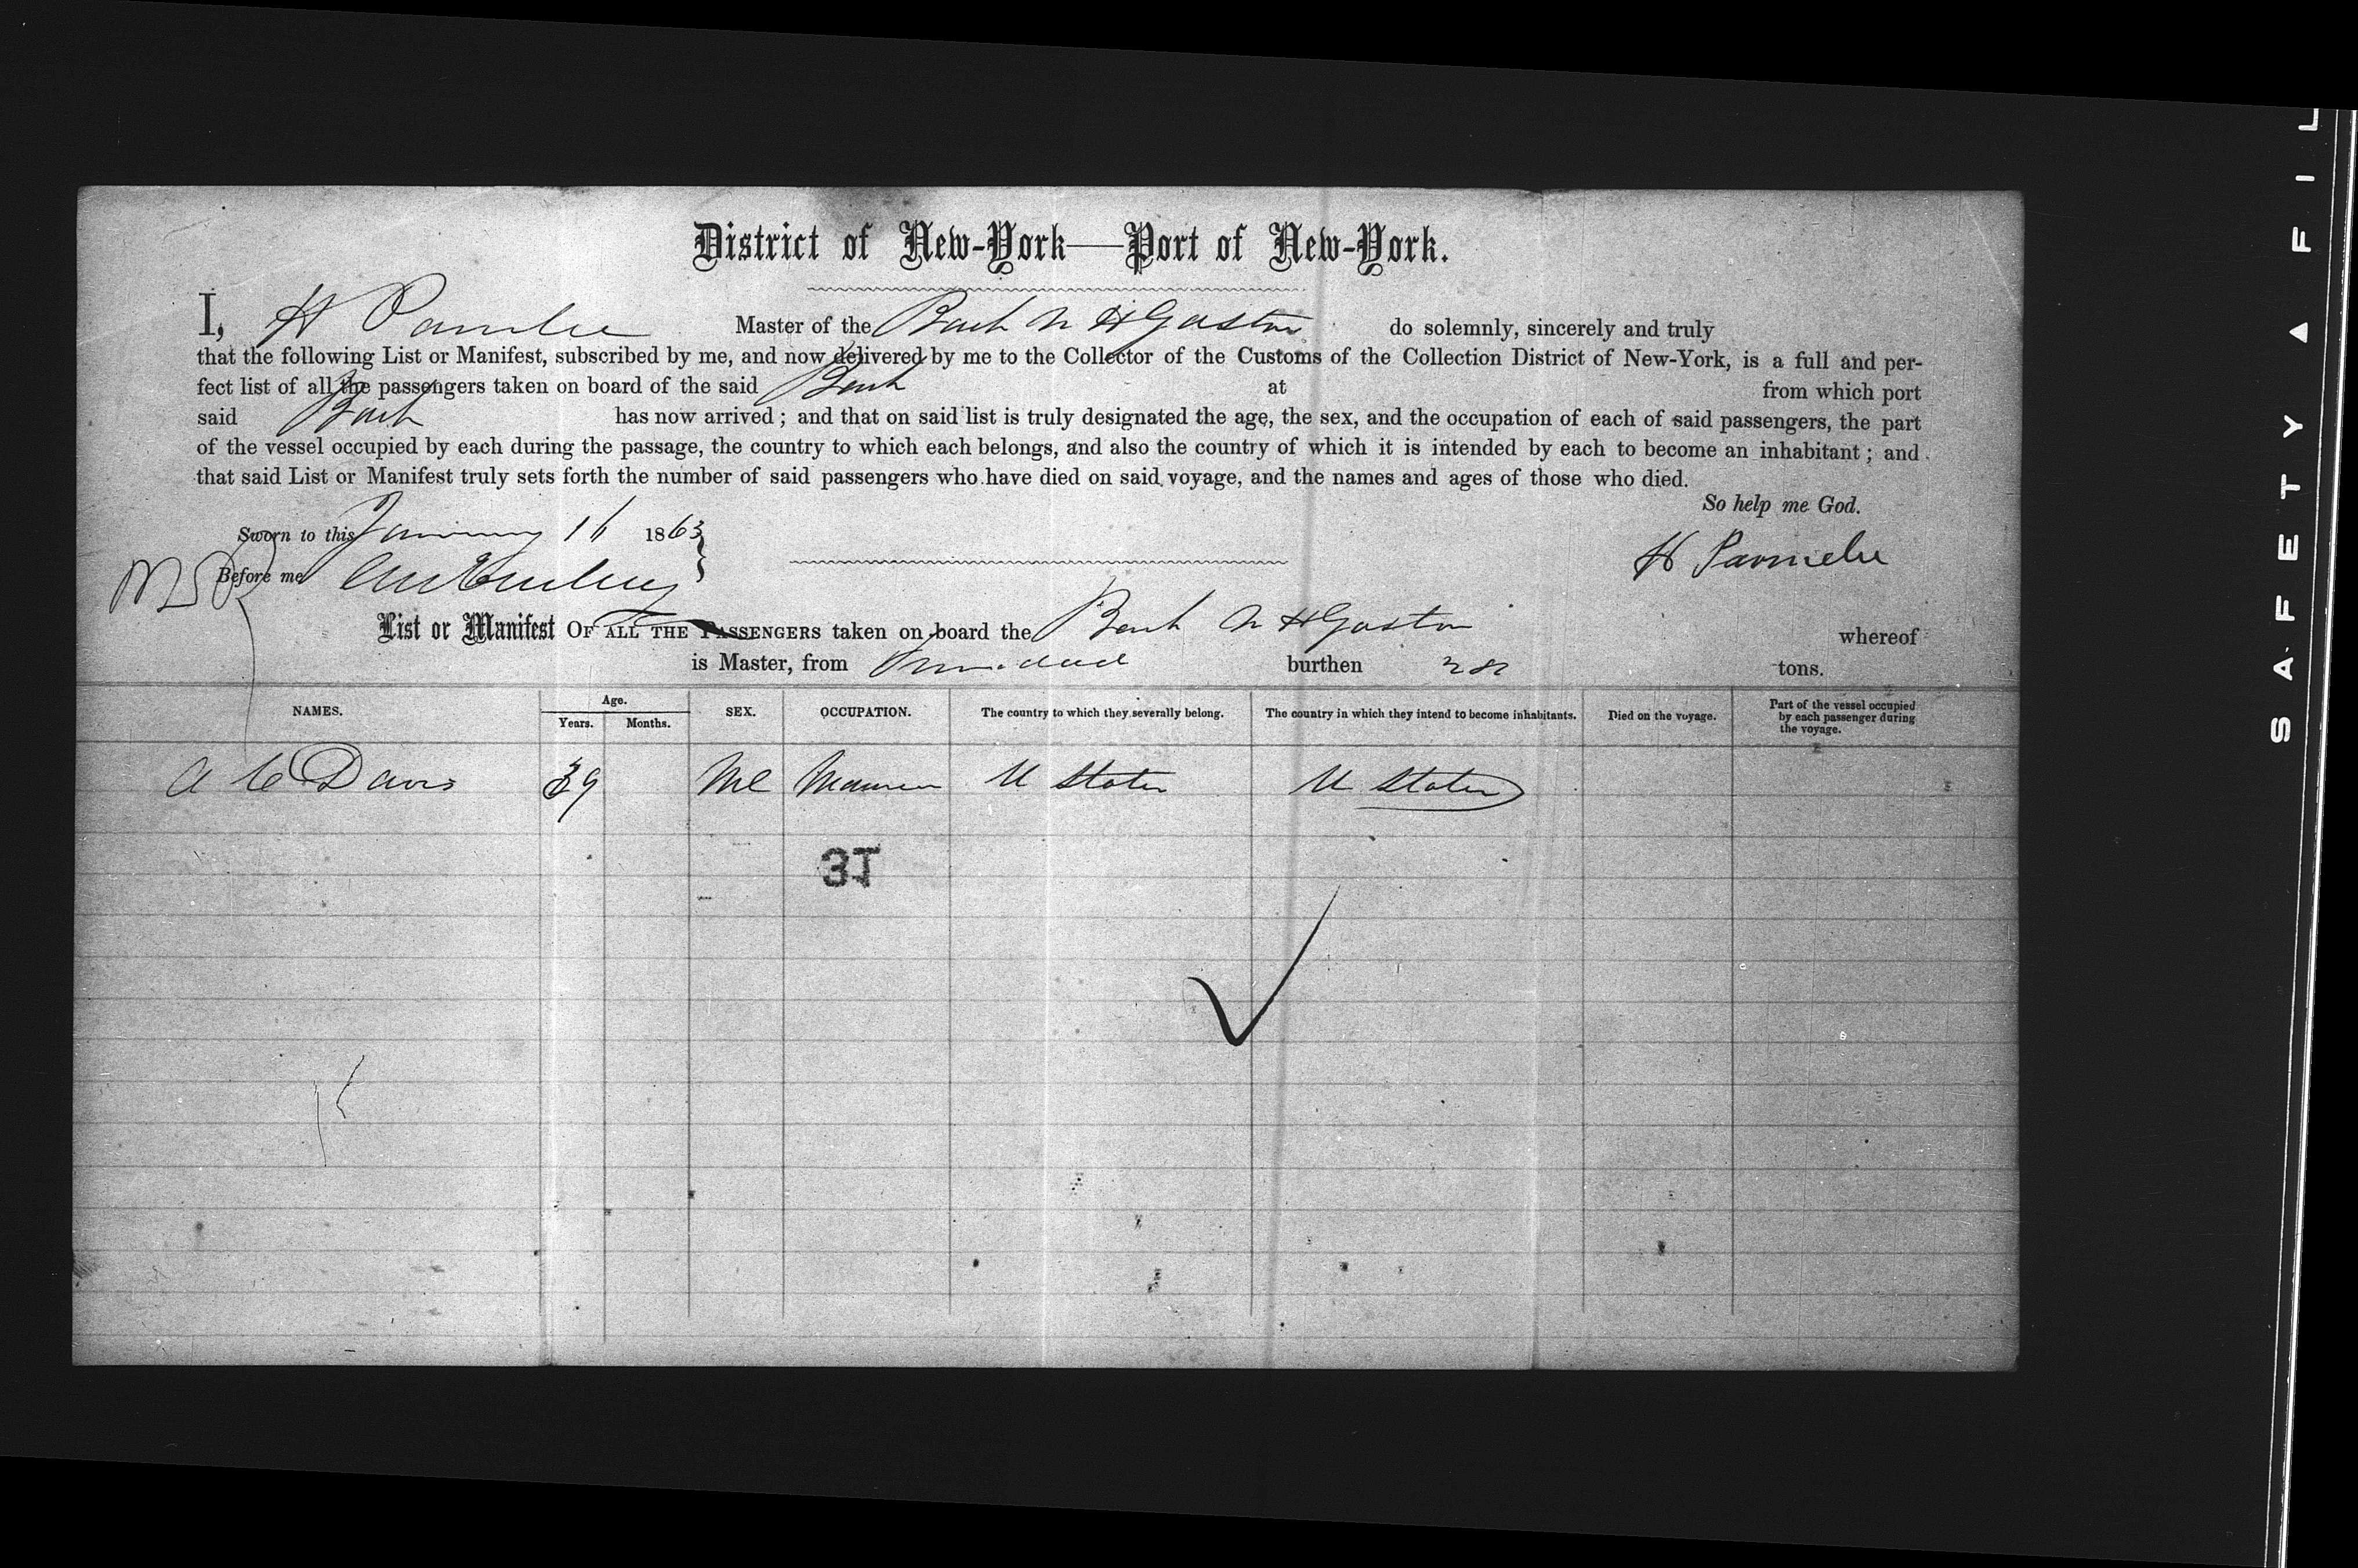 District of New-York—Port of New-York.
I, H Parmelee Master of the Bark N H Gaston do solemnly, sincerely and truly
that the following List or Manifest, subscribed by me, and now delivered by me to the Collector of the Customs of the Collection District of New-York, is a full and per-
fect list of all the passengers taken on board of the said Bark at from which port
said Bark has now arrived ; and that on said list is truly designated the age, the sex, and the occupation of each of said passengers, the part
of the vessel occupied by each during the passage, the country to which each belongs, and also the country of which it is intended by each to become an inhabitant ; and
that said List or Manifest truly sets forth the number of said passengers who have died on said voyage, and the names and ages of those who died.
So help me God.
Sworn to this January 16 1863
H Parmelee
Before me
List or Manifest OF ALL THE PASSENGERS taken on board the Bark N H Gaston whereof
is Master, from Trinidad burthen tons.
NAMES. Age. Years. Months. SEX. OCCUPATION. The country to which they severally belong. The country in which they intend to become inhabitants. Died on the voyage. Part of the vessel occupied by each passenger during the voyage.
A C Davis 39 Ml Mariner U States U States
31
SAFETY ▲ FIL